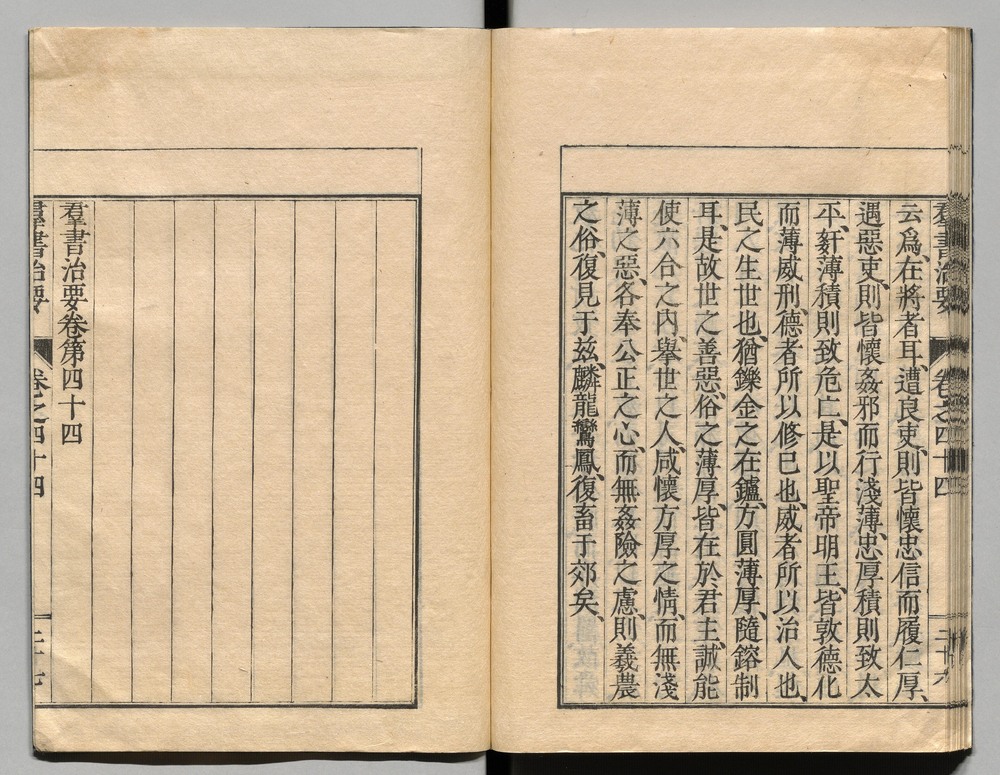 羣書治要 卷之四十四 二十六
云爲、在將者耳、遭良吏、則皆懷忠信而履仁厚、
遇惡吏、則皆懷姦邪而行淺薄、忠厚積則致太
平、姧薄積則致危亡、是以聖帝明王、皆敦德化
而薄威刑、德者所以修己也、威者所以治人也、
民之生世也、猶鑠金之在鑪、方圓薄厚、隨鎔制
耳、是故世之善惡、俗之薄厚、皆在於君主、誠能
使六合之內、舉世之人、咸懷方厚之情、而無淺
薄之惡、各奉公正之心、而無姦險之慮、則羲農
之俗、復見于玆、麟龍鸞鳳、復畜于郊矣、
羣書治要卷第四十四
羣書治要 卷之四十四 二十七